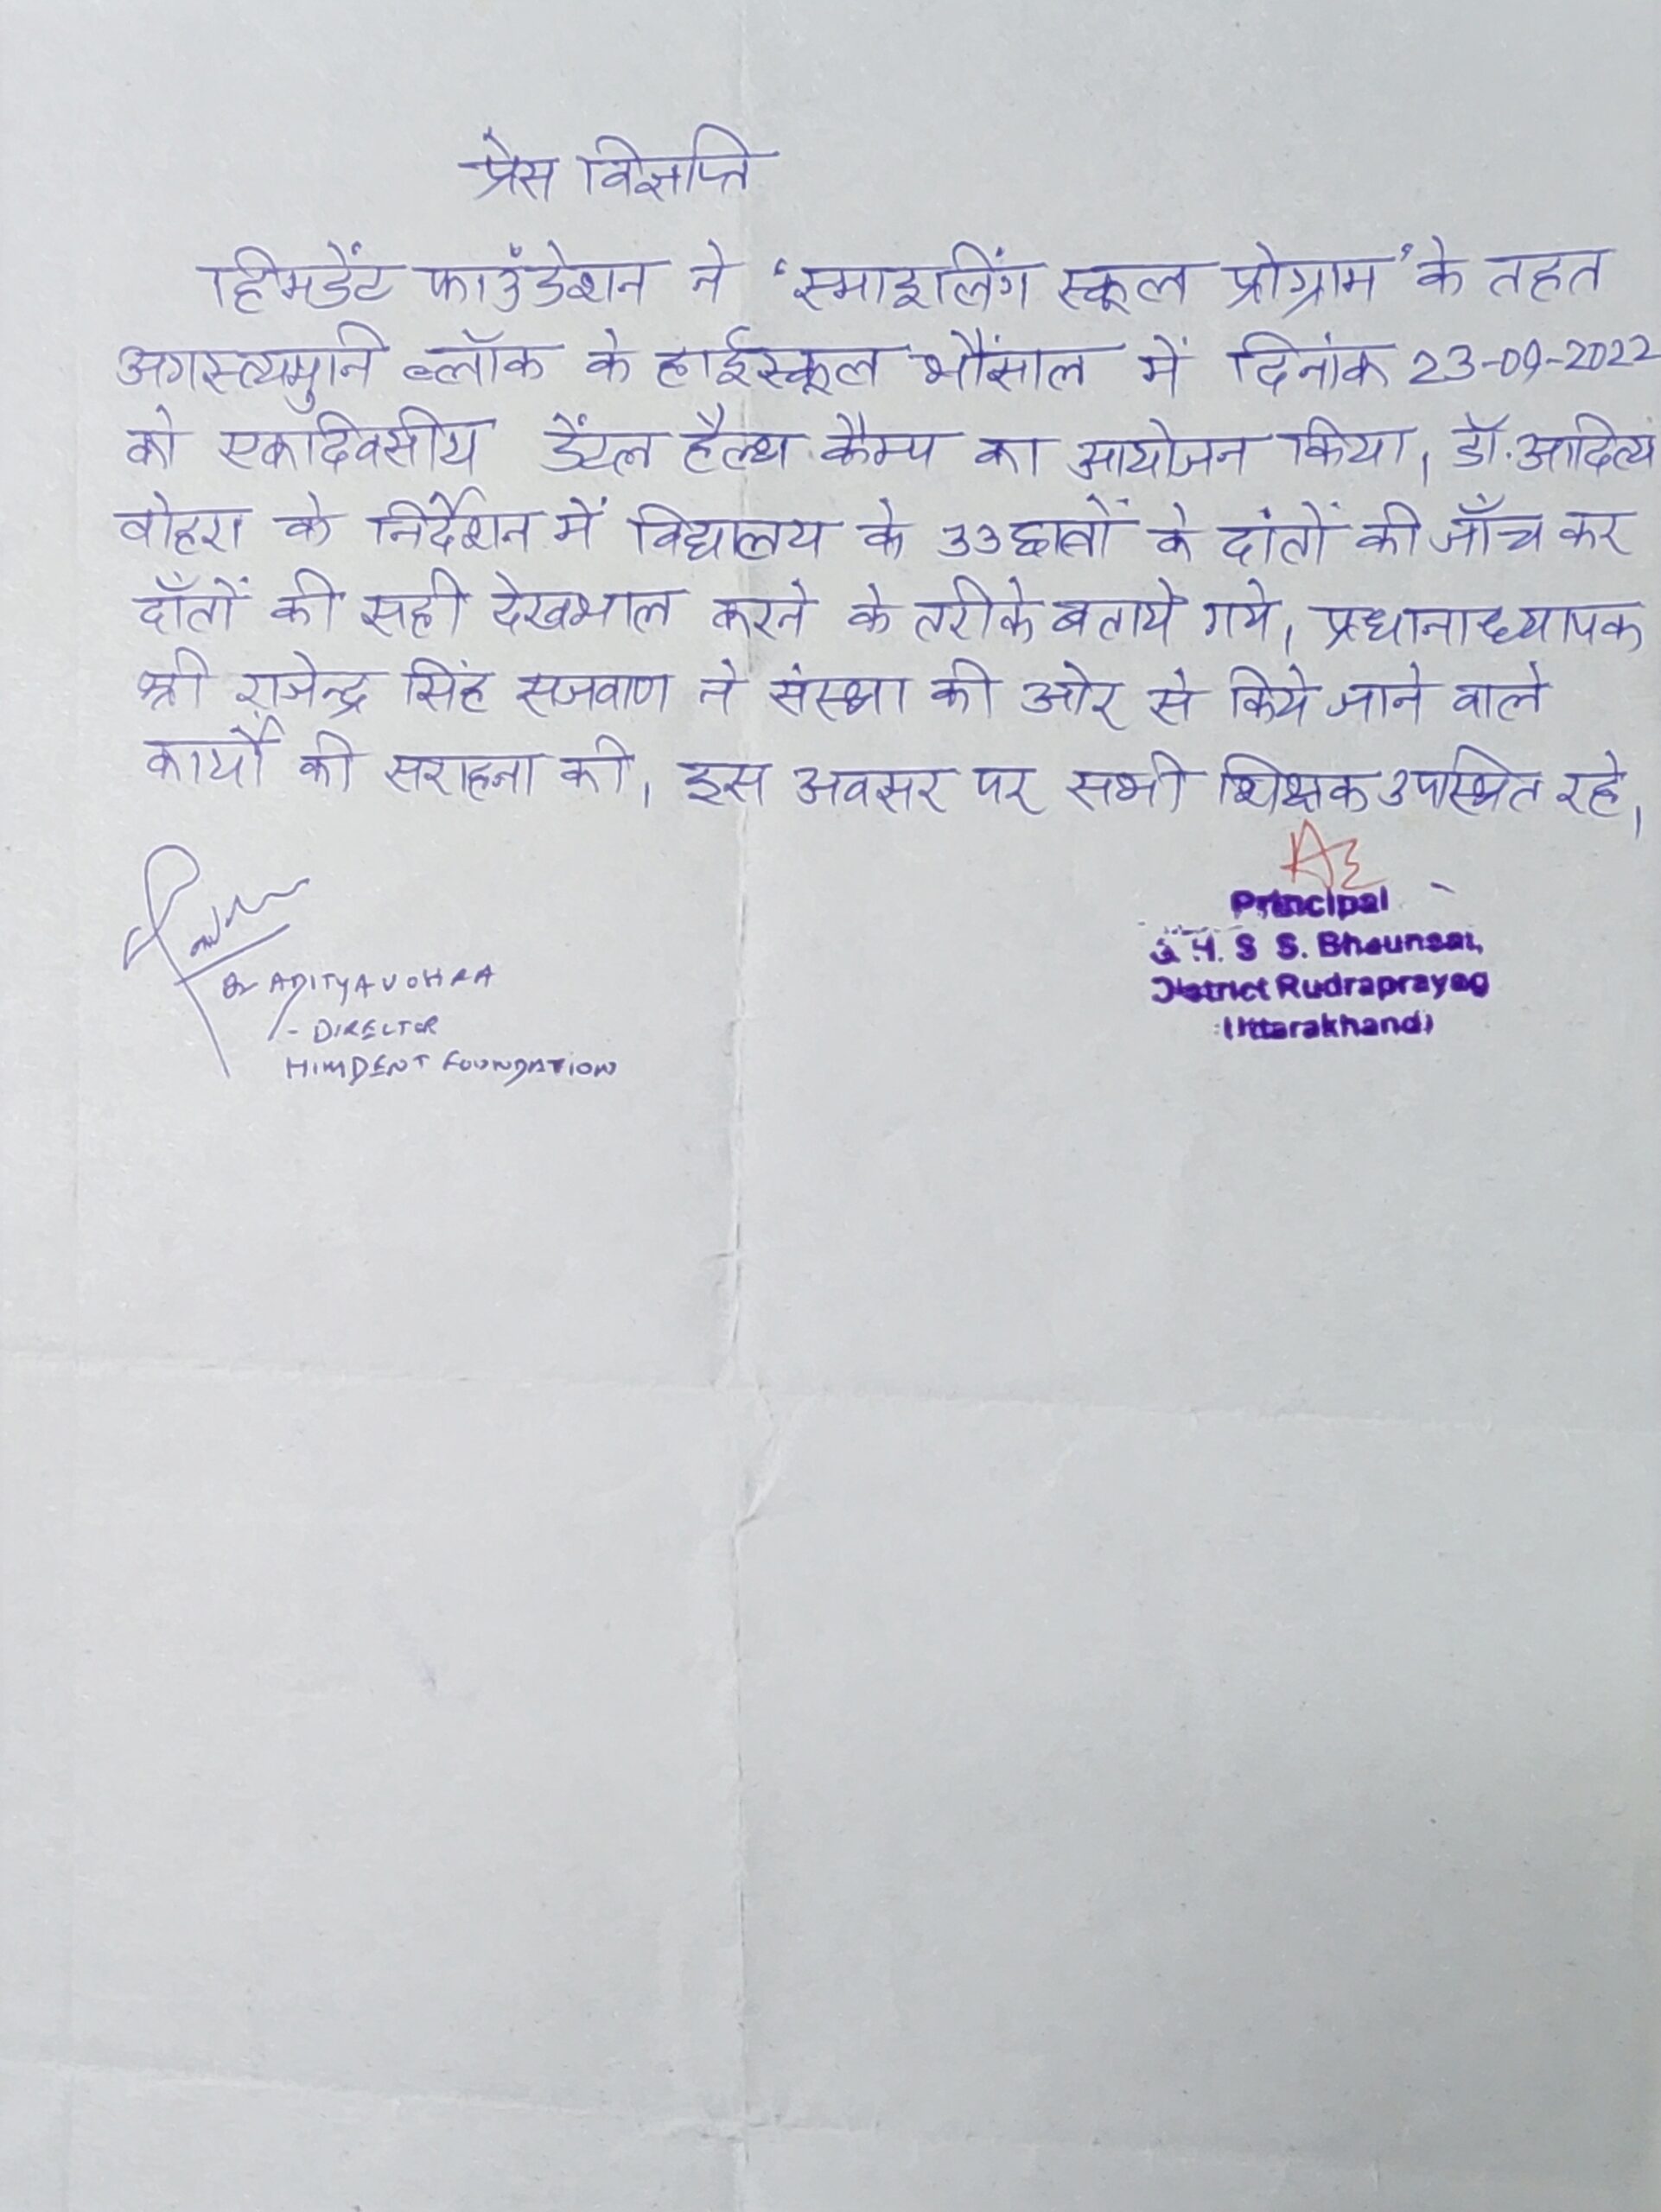 प्रेस विज्ञप्ति
हिमडेंट फाउंडेशन ने 'स्माइलिंग स्कूल प्रोग्राम' के तहत
अगस्त्यमुनि ब्लॉक के हाईस्कूल भौंसाल में दिनांक 23-09-2022
को एकदिवसीय डेंटल हैल्थ कैम्प का आयोजन किया। डॉ. आदित्य
वोहरा के निर्देशन में विद्यालय के 33 छात्रों के दांतों की जाँच कर
दाँतों की सही देखभाल करने के तरीके बताये गये। प्रधानाध्यापक
श्री राजेन्द्र सिंह सजवाण ने संस्था की ओर से किये जाने वाले
कार्यों की सराहना की। इस अवसर पर सभी शिक्षक उपस्थित रहे।
Dr ADITYA VOHRA
- DIRECTOR
HIMDENT FOUNDATION
Principal
G.H.S S. Bhaunsal,
District Rudraprayag
(Uttarakhand)